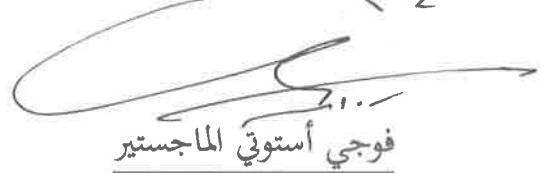 فوجي أستوتي الماجستير